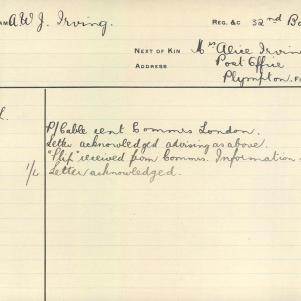 AM A W J. Irving. REG. &C 32nd Ba
NEXT OF KIN Mrs Alice Irvin
ADDRESS Post Office
Plympton. F
P/Cable sent Commrs London.
Letter acknowledged advising as above.
"Slip" received from Commrs. Information
1/2 Letter acknowledged.